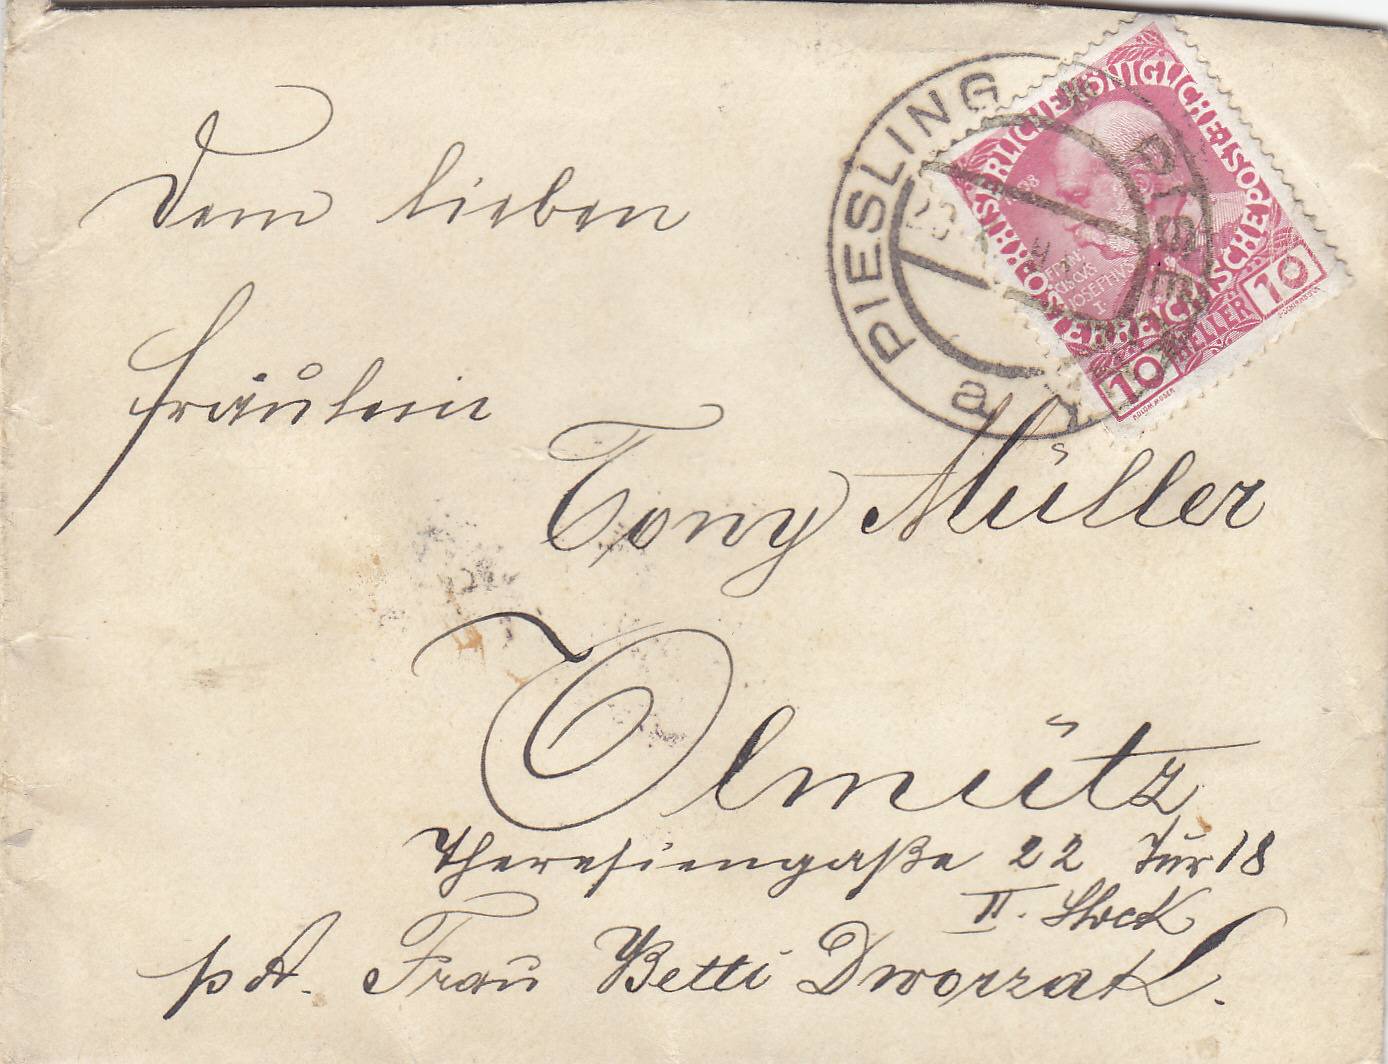 Dem lieben
Fräulein
Tony Müller
Olmütz
Theresiengaße 22 Tür 18
II. Stock
p A. Frau Betti Dworzak.
PIESLING
a
KAISERLICHE KÖNIGLICHE ÖSTERREICHISCHE POST
FRANCISCVS
JOSEPHVS
I.
10 HELLER 10
KOLOM. MOSER